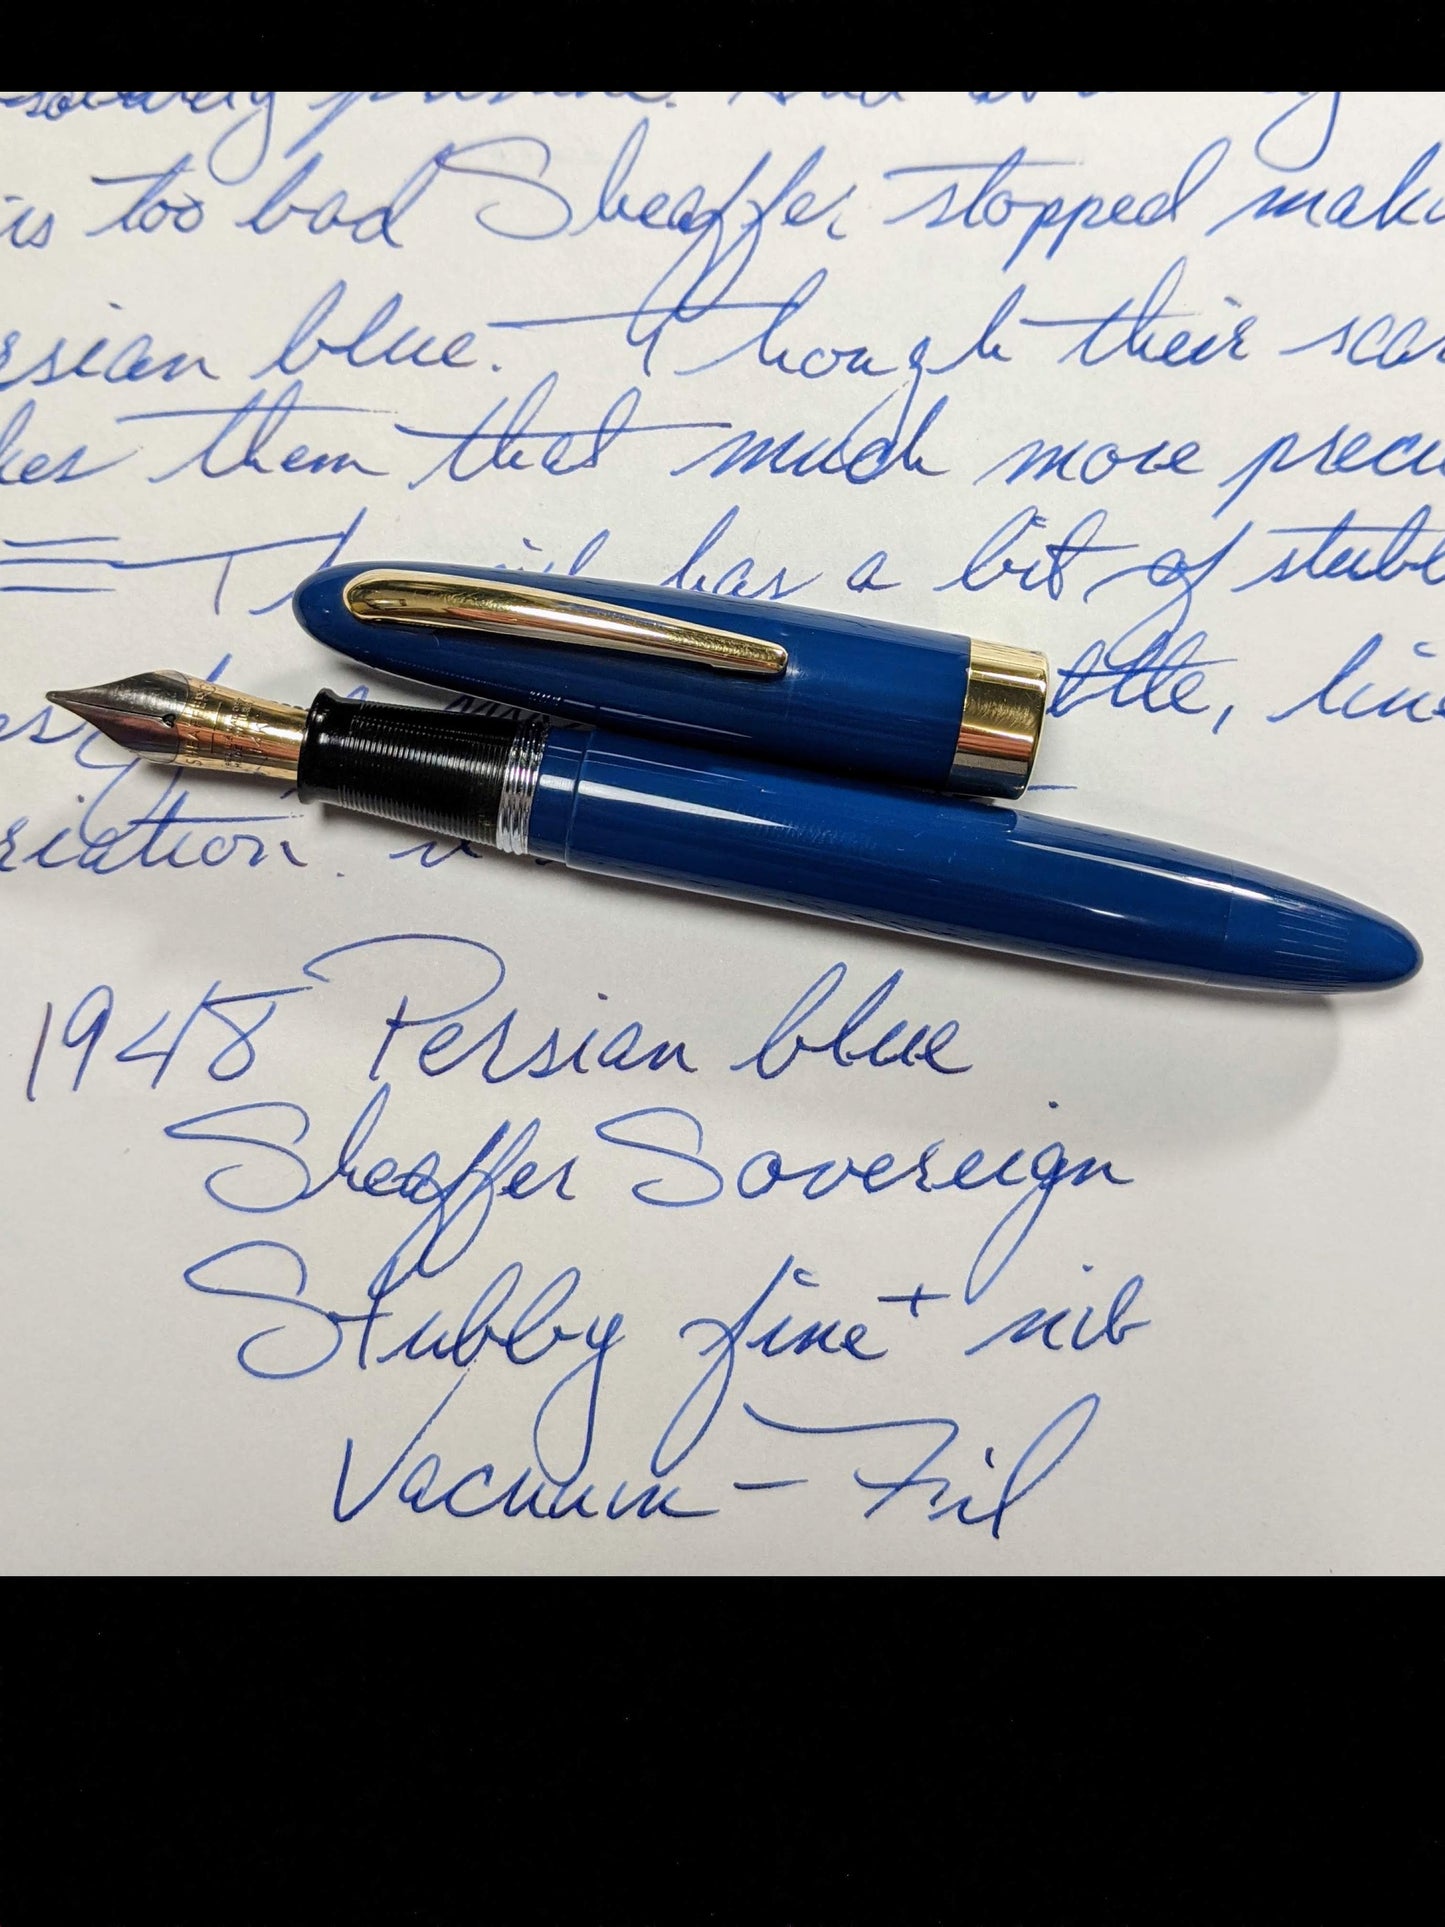 is too bad Sheaffer stopped maki
rsian blue. Though their scar
kes them that much more preci
has a bit of stubb
ttle, line
riation.
1948 Persian blue
Sheaffer Sovereign
Stubby fine+ nib
Vacuum-Fil